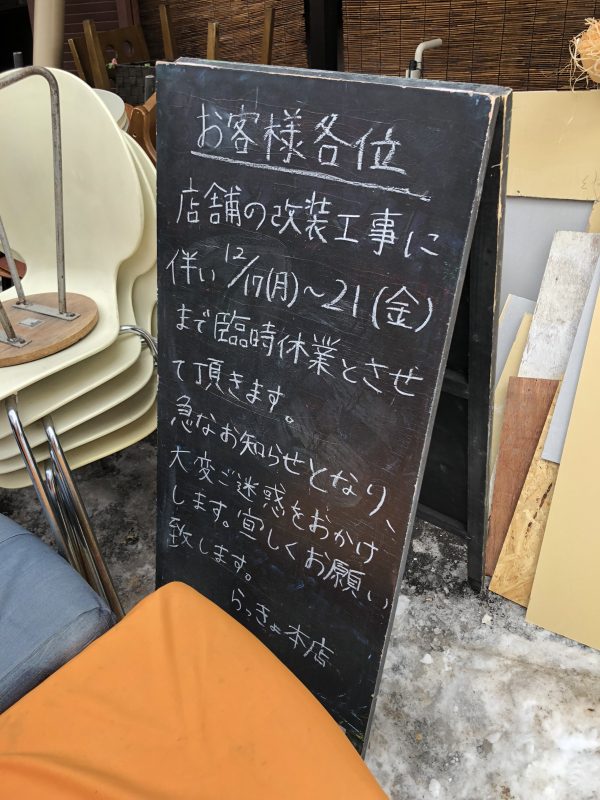 お客様各位
店舗の改装工事に
伴い12/17(月)～21(金)
まで臨時休業とさせ
て頂きます。
急なお知らせとなり、
大変ご迷惑をおかけ
します。宜しくお願い
致します。
らっきょ本店